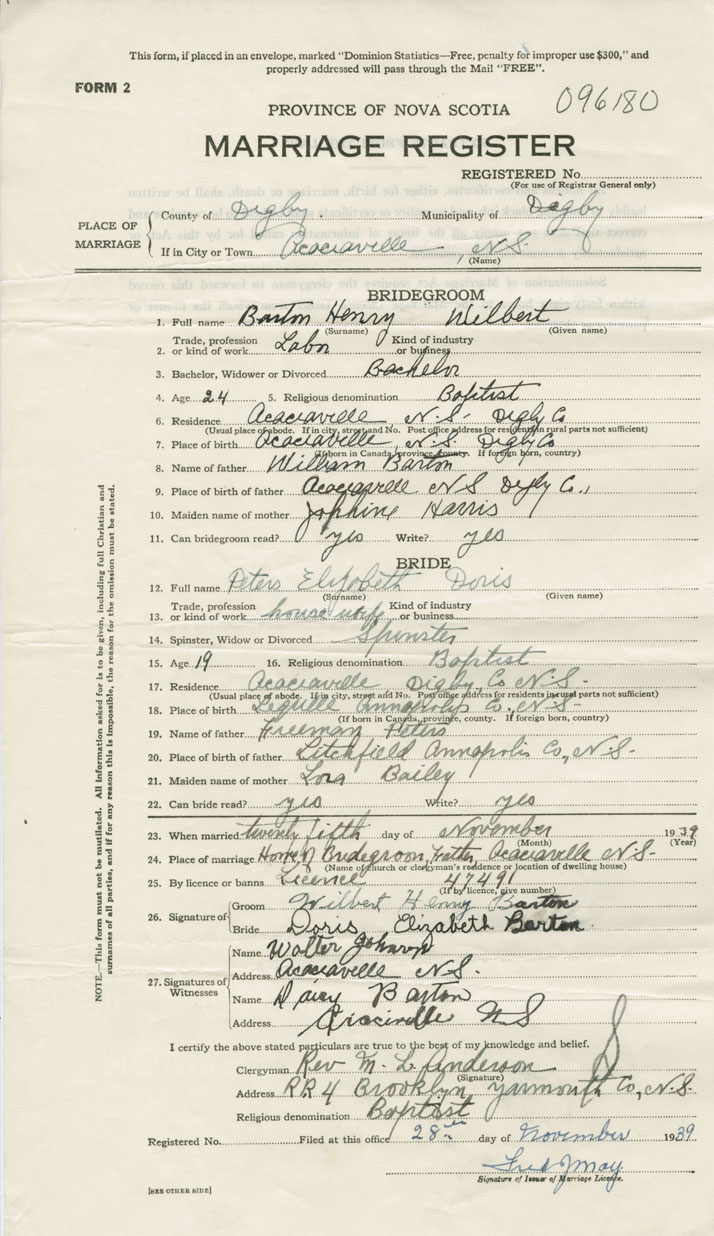 This form, if placed in an envelope, marked "Dominion Statistics—Free, penalty for improper use $300," and
properly addressed will pass through the Mail "FREE".
FORM 2
096180
PROVINCE OF NOVA SCOTIA
MARRIAGE REGISTER
REGISTERED No.
(For use of Registrar General only)
PLACE OF MARRIAGE
County of Digby. Municipality of Digby
If in City or Town Acaciaville, N.S.
(Name)
BRIDEGROOM
1. Full name Barton Henry Wilbert
(Surname) (Given name)
2. Trade, profession or kind of work Labor Kind of industry or business
3. Bachelor, Widower or Divorced Bachelor
4. Age 24 5. Religious denomination Baptist
6. Residence Acaciaville, N.S. Digby Co
(Usual place of abode. If in city, street and No. Post office address for residents in rural parts not sufficient)
7. Place of birth Acaciaville, N.S. Digby Co
(If born in Canada, province, county. If foreign born, country)
8. Name of father William Barton
9. Place of birth of father Acaciaville N S Digby Co.,
10. Maiden name of mother Jophine Harris
11. Can bridegroom read? yes Write? yes
BRIDE
12. Full name Peters Elizabeth Doris
(Surname) (Given name)
13. Trade, profession or kind of work house wife Kind of industry or business
14. Spinster, Widow or Divorced Spinster
15. Age 19 16. Religious denomination Baptist
17. Residence Acaciaville Digby Co N.S.
(Usual place of abode. If in city, street and No. Post office address for residents in rural parts not sufficient)
18. Place of birth Lequille Annapolis Co, N.S.
(If born in Canada, province, county. If foreign born, country)
19. Name of father Freeman Peters
20. Place of birth of father Litchfield Annapolis Co., N.S.
21. Maiden name of mother Lora Bailey
22. Can bride read? yes Write? yes
23. When married twenty fifth day of November 1939
(Month) (Year)
24. Place of marriage Home of Bridegroom, Father, Acaciaville N.S.
(Name of church or clergyman's residence or location of dwelling house)
25. By licence or banns Licence 47491
(If by licence, give number)
26. Signature of
Groom Wilbert Henry Barton
Bride Doris Elizabeth Barton.
27. Signatures of Witnesses
Name Walter Johnson
Address Acaciaville N.S.
Name Daisy Barton
Address Acaciville N S
I certify the above stated particulars are true to the best of my knowledge and belief.
Clergyman Rev M. L. Anderson
(Signature)
Address RR 4 Brooklyn, Yarmouth Co, N.S.
Religious denomination Baptist
Registered No. Filed at this office 28th day of November 1939
Fred J May
Signature of Issuer of Marriage Licence.
[SEE OTHER SIDE]
NOTE.—This form must not be mutilated. All information asked for is to be given, including full Christian and
surnames of all parties, and if for any reason this is impossible, the reason for the omission must be stated.